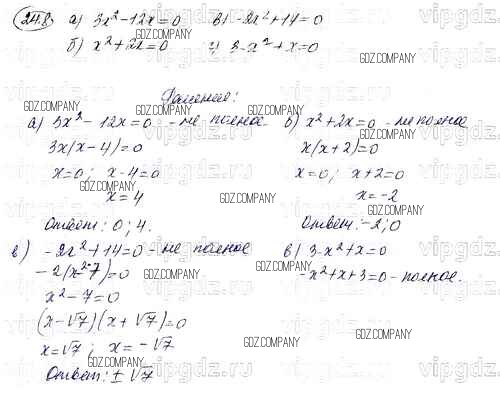 24.8. а) 3x²-12x=0 в) -2x²+14=0
б) x²+2x=0 г) 3-x²+x=0
Решение:
а) 3x²-12x=0 - не полное
3x(x-4)=0
x=0; x-4=0
x=4
Ответ: 0; 4.
б) x²+2x=0 - не полное
x(x+2)=0
x=0; x+2=0
x=-2
Ответ: -2; 0
в) -2x²+14=0 - не полное
-2(x²-7)=0
x²-7=0
(x-√7)(x+√7)=0
x=√7; x=-√7
Ответ: ±√7
в) 3-x²+x=0
-x²+x+3=0 - полное.
GDZ.COMPANY
vipgdz.ru